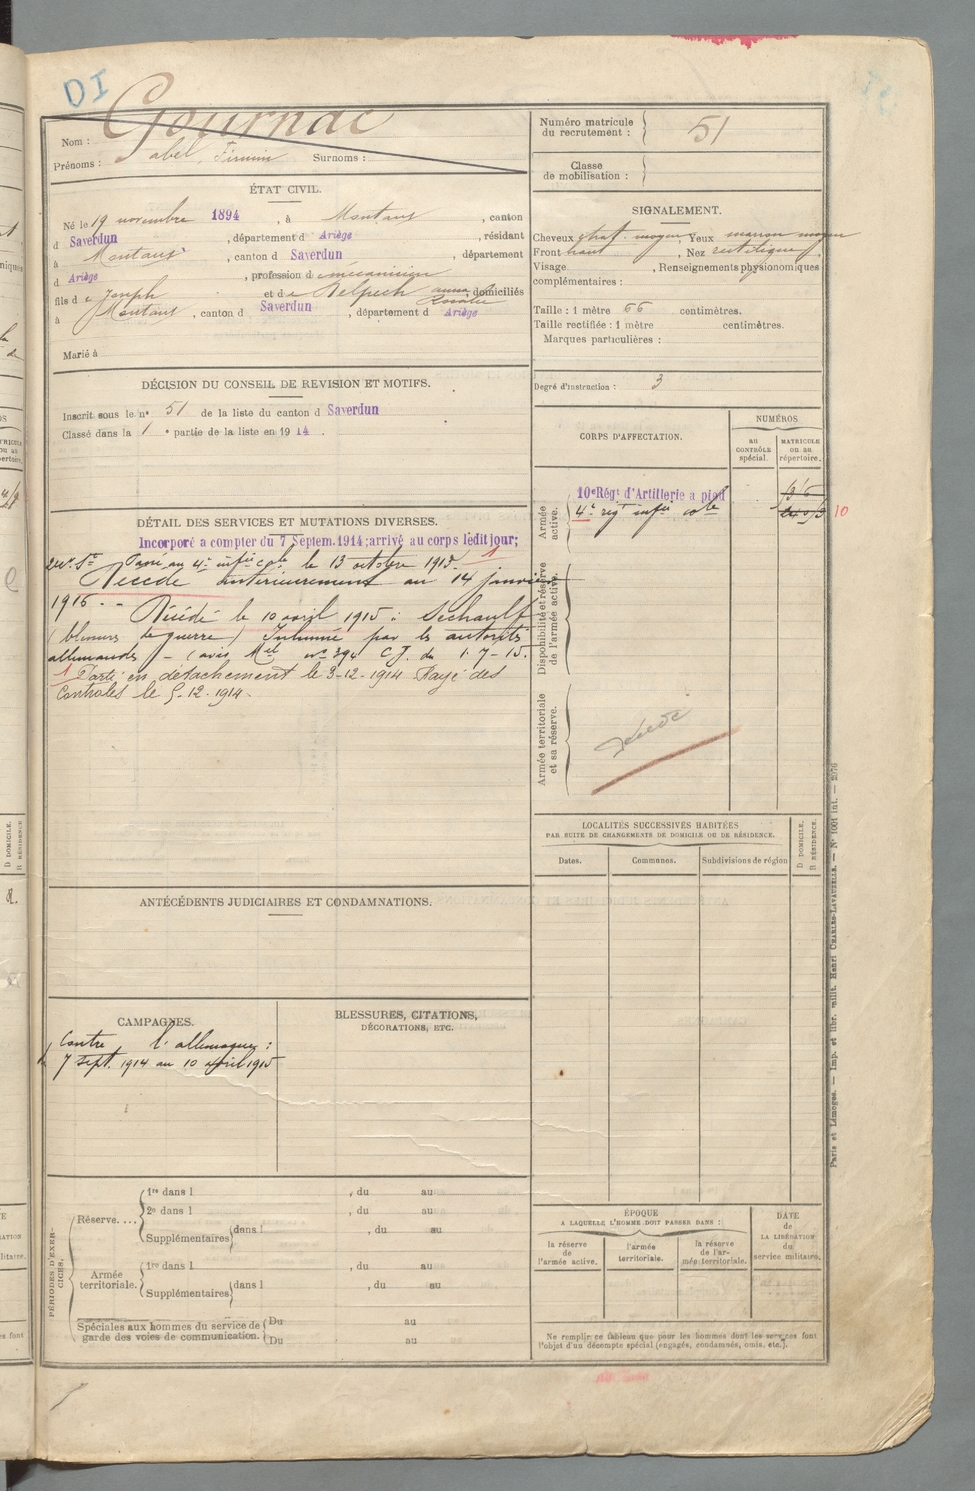 DI
Gournac
Nom :
Prénoms : Abel, Firmin Surnoms :
Numéro matricule du recrutement : 51
Classe de mobilisation :
ÉTAT CIVIL.
Né le 19 novembre 1894, à Montaut, canton
d Saverdun, département d Ariège, résidant
à Montaut, canton d Saverdun, département
d Ariège, profession d mécanicien
fils de Joseph et de Delpech anna Rosalie, domiciliés
à Montaut, canton d Saverdun, département d Ariège
Marié à
SIGNALEMENT.
Cheveux chat. moyen, Yeux marron moyen
Front haut, Nez rectiligne
Visage , Renseignements physionomiques
complémentaires :
Taille : 1 mètre 66 centimètres.
Taille rectifiée : 1 mètre centimètres.
Marques particulières :
Degré d'instruction : 3
DÉCISION DU CONSEIL DE REVISION ET MOTIFS.
Inscrit sous le n° 51 de la liste du canton d Saverdun
Classé dans la 1e partie de la liste en 1914.
DÉTAIL DES SERVICES ET MUTATIONS DIVERSES.
Incorporé a compter du 7 Septem. 1914; arrivé au corps ledit jour;
Passé au 4e infie cole le 13 octobre 1915. 1
Décédé antérieurement au 14 janvier
1916. - Décédé le 10 avril 1915 à Sechault
(blessures de guerre) Inhumé par les autorités
allemandes - (avis Mel n° 394 C.J. du 1-7-15.
1 Parti en détachement le 3-12-1914 Rayé des
Controles le 5-12-1914.
CORPS D'AFFECTATION.
NUMÉROS
AU CONTRÔLE spécial.
MATRICULE ou au répertoire.
Armée active.
10e Régt d'Artillerie a pied
4e regt infie cole
10
Disponibilité et réserve de l'armée active.
Armée territoriale et sa réserve.
Décédé
LOCALITÉS SUCCESSIVES HABITÉES
PAR SUITE DE CHANGEMENTS DE DOMICILE OU DE RÉSIDENCE.
Dates.
Communes.
Subdivisions de région
D DOMICILE.
R RÉSIDENCE.
ANTÉCÉDENTS JUDICIAIRES ET CONDAMNATIONS.
CAMPAGNES.
Contre l'allemagne :
7 sept. 1914 au 10 avril 1915
BLESSURES, CITATIONS,
DÉCORATIONS, ETC.
PÉRIODES D'EXERCICES.
Réserve....
1re dans l , du au
2e dans l , du au
Supplémentaires dans l , du au
Armée territoriale.
1re dans l , du au
Supplémentaires dans l , du au
Spéciales aux hommes du service de garde des voies de communication.
Du au
Du au
ÉPOQUE
A LAQUELLE L'HOMME DOIT PASSER DANS :
la réserve de l'armée active.
l'armée territoriale.
la réserve de l'armée territoriale.
DATE de LA LIBÉRATION du service militaire.
Ne remplir ce tableau que pour les hommes dont les services font
l'objet d'un décompte spécial (engagés, condamnés, omis, etc.).
Paris et Limoges. — Imp. et libr. milit. Henri CHARLES-LAVAUZELLE. — N° 1001 int. — 2076